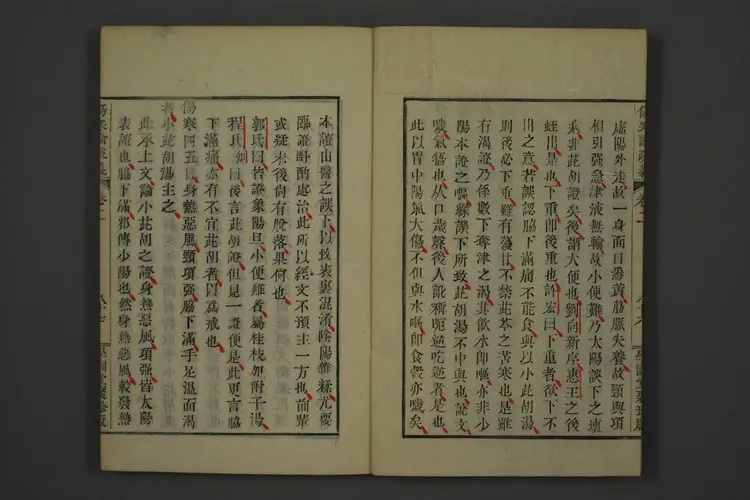 虛陽外走故一身面目悉黃筋脈失養故頸與項
相引強急津液無輸故小便難乃太陽誤下之壞
病非茈胡證矣後謂大便也劉向新序惠王之後
蛭出是也下重即後重也許宏曰下重者欲下不
出之意若誤認脇下滿痛不能食與以小茈胡湯
則後必下重雖有薓甘不禁茈芩之苦寒也是雖
有渴證乃係數下奪津之渴其飲水即嘔亦非少
陽本證之嘔緣誤下所致茈胡湯不中與也說文
噦氣啎也从口歲聲後人訛稱
逆者是也
此以胃中陽氣大傷不但與水嘔即食穀亦噦矣
本證由醫之誤下以致表裏混淆陰陽雜糅尤要
臨證酙酌處治此所以經文不預主一方也前輩
或疑末後尚有脫落果何也
郭氏曰若證象陽旦小便難者屬桂枝加附子湯
程氏曰後言茈胡證但見一證便是此更言脇
下滿痛亦有不宜茈胡者以為戒也
傷寒四五日身熱惡風頸項強脇下滿手足溫而渴
者小茈胡湯主之
此承上文論小茈胡之證身熱惡風項強皆太陽
表證也脇下滿邪傳少陽也然身熱惡風較發熱
傷寒論疏義
卷二